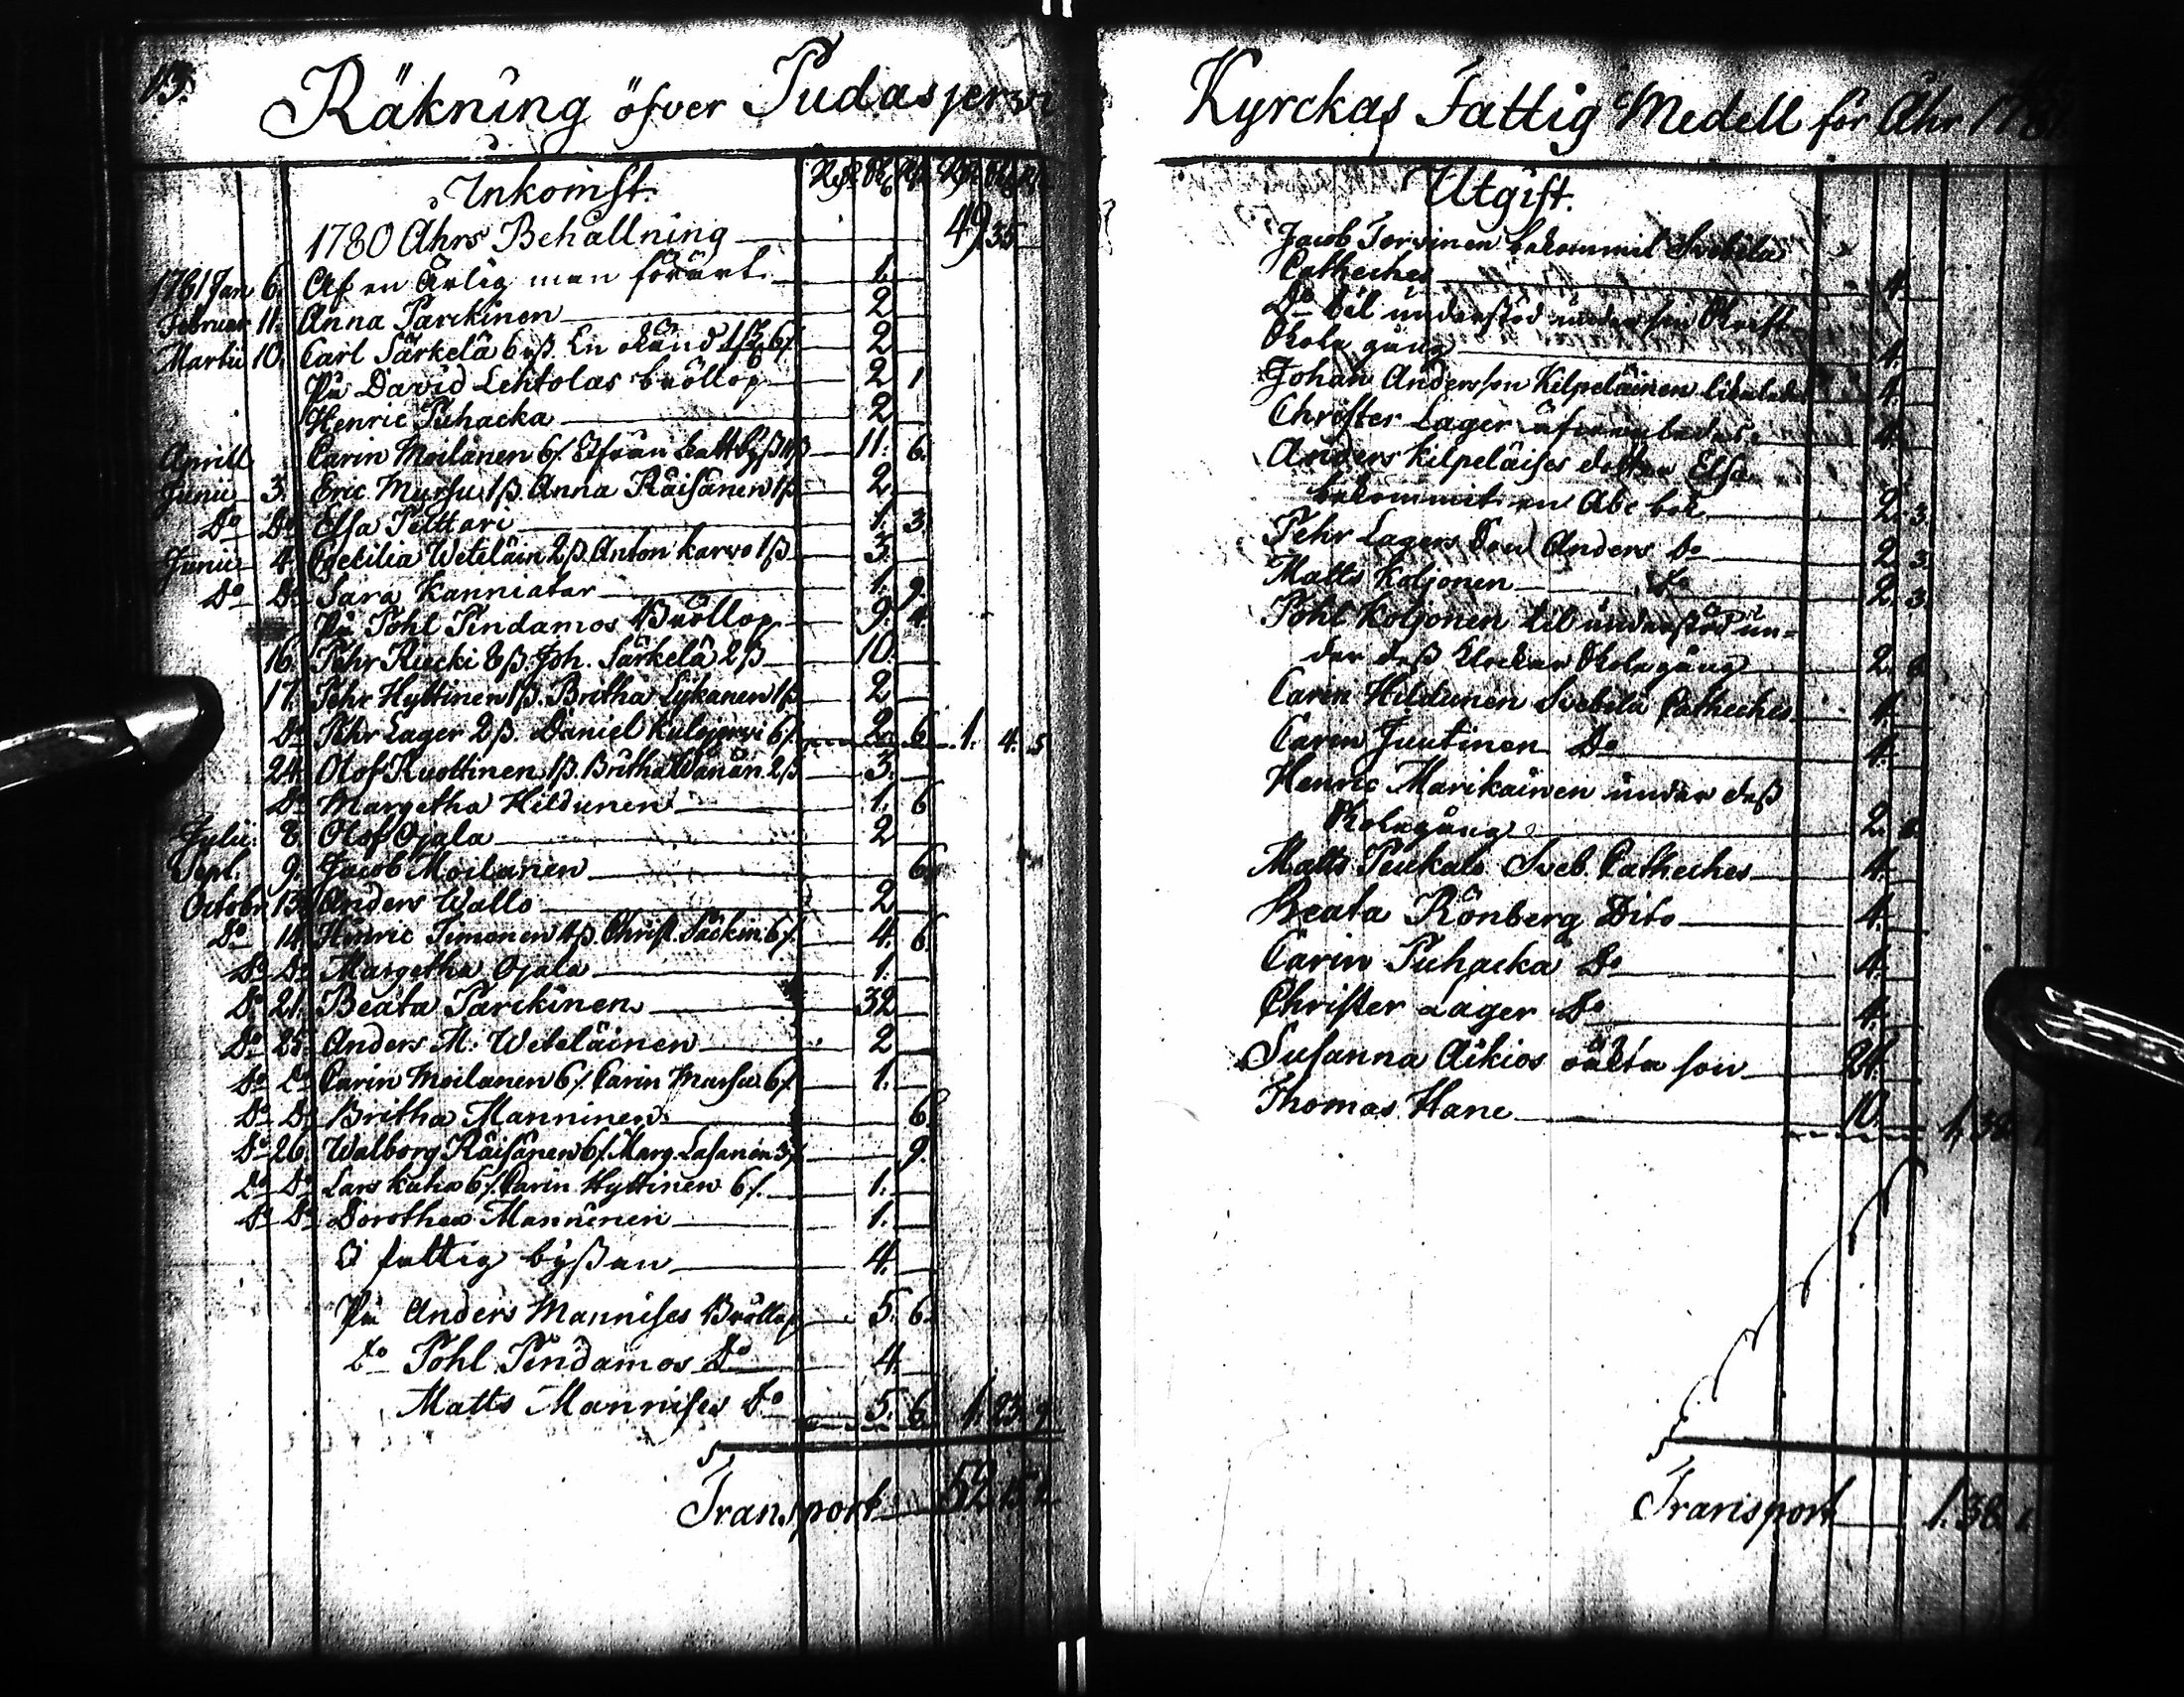 13.
Räkning öfver Pudasjervi
Inkomst. Rdr ß rst Rdr ß rst
1780 Ahrs Behållning 49. 35.
1781 Jan 6. Af en Ärlig man förärt 1.
Februar. 11. Anna Parckinen 2
Martii 10. Carl Särkelä 6ß. En okänd 1ß 6/. 2
På David Lehtolas bröllop 2 1
Henric Puhacka 2
Aprill Carin Moilanen 6/. 11. 6.
Junii 3. Eric Mursu 1ß. Anna Räisänen 1ß 2
Do Do Elsa Pelttari 1. 3.
Junii 4. Cecilia Weteläin 2ß. Anton Karvo 1ß 3.
Do Do Sara Kanniator 1. 9.
På Pohl Pindamos Bröllop 9. 4.
16. Pehr Rucki 8ß. Joh. Särkelä 2ß 10.
17. Pehr Hyttinen 1ß. Britha Lykanen 1ß 2
Do Pehr Lager 2ß. Daniel Kulojervi 6/. 2. 6. 1. 4. 5
24. Olof Ruottinen 1ß. Britha Wänän. 2ß 3.
Do Margetha Hildunen 1. 6
Julii 8. Olof Ojala 2
Sept. 9. Jacob Moilanen 6.
Octobr. 13. Anders Wallo 2
Do 14. Henric Timonen 4ß. Christ. Säckin. 6/. 4. 6.
Do Do Margetha Ojala 1.
Do 21. Beata Parckinen 32
Do 25. Anders M. Weteläinen 2
Do Do Carin Moilanen 6/. Carin Mursu 6/. 1.
Do Do Britha Manninen 6.
Do 26. Walborg Räisänen 6/. Marg. Lasanen 3/. 9.
Do Do Lars Kuha 6/. Carin Hyttinen 6/. 1.
Do Do Dorothea Manninen 1.
I fattig byßan 4.
På Anders Mannises Bröllop 5. 6.
Do Pohl Pindamos Do 4.
Matts Mannises Do 5. 6. 1. 23. 9
Transport 52. 15. 2
Kyrckas Fattig Medell för Åhr 1781.
Utgift.
Jacob Torvinen bekommit Svebelii
Catheches 4.
Do til understöd under sin
Skola gång 4.
Johan Andersson Kilpeläinen likaledes 4.
Christer Lager 4.
Anders Kilpeläises dotter Elsa
bekommit en Abc bok 2. 3.
Pehr Lagers Son Anders Do 2. 3.
Matts Koljonen Do 2. 3.
Pohl Koljonen til understöd un-
der deß Skolagång 2.
Carin Hildunen Svebelii Catheches 4.
Carin Juutinen Do 4.
Henric Marikainen under deß
Skolagång 2.
Matts Peukalo Sveb. Catheches 4.
Beata Rönberg Dito 4.
Carin Puhacka Do 4.
Christer Lager Do 4.
Susanna Aikios oäkta son 24.
Thomas Hane 10. 1. 38.
Transport 1. 38. 1.